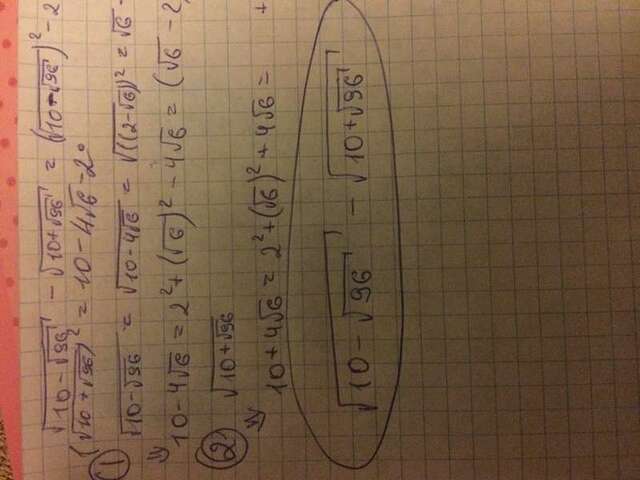 √(10-√96) - √(10+√96) = (√(10-√96))² - 2
(√(10+√96))² = 10-4√6-2·
① √(10-√96) = √(10-4√6) = √((2-√6))² = √6 -
⇓ 10-4√6 = 2²+(√6)²-4√6 = (√6-2)
② √(10+√96)
⇓ 10+4√6 = 2²+(√6)²+4√6 =
√(10-√96) - √(10+√96)